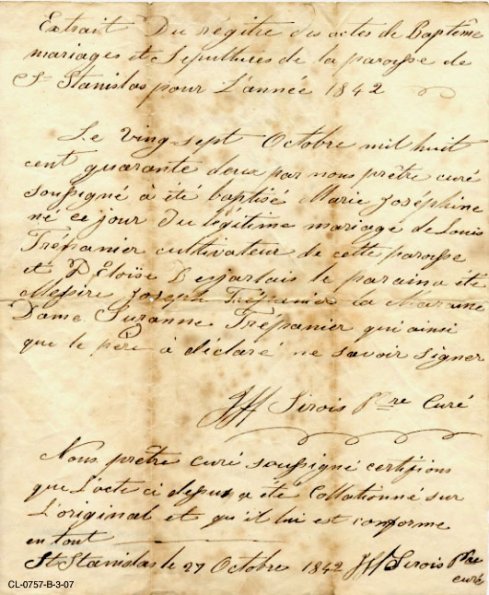 Extrait Du régitre des actes de Baptême
mariages et Sépultures de la paroisse de
St Stanislas pour L'année 1842
Le Ving sept Octobre mil huit
cent quarante deux par nous prêtre curé
soussigné à été baptisé Marie Joséphine
né ce jour du légitime mariage de Louis
Trépanier cultivateur de cette paroisse
et D'Eloïse Desjarlais le parain a été
Messire Joseph Trépanier la Maraine
Dame Suzanne Trépanier qui ainsi
que le père à déclaré ne savoir signer
Sirois Ptre Curé
Nous prêtre curé soussigné certifions
que L'acte ci dessus a été Collationné sur
L'original et qu'il lui est conforme
en tout
St Stanislas le 27 Octobre 1842 Sirois Ptre
curé
CL-0757-B-3-07